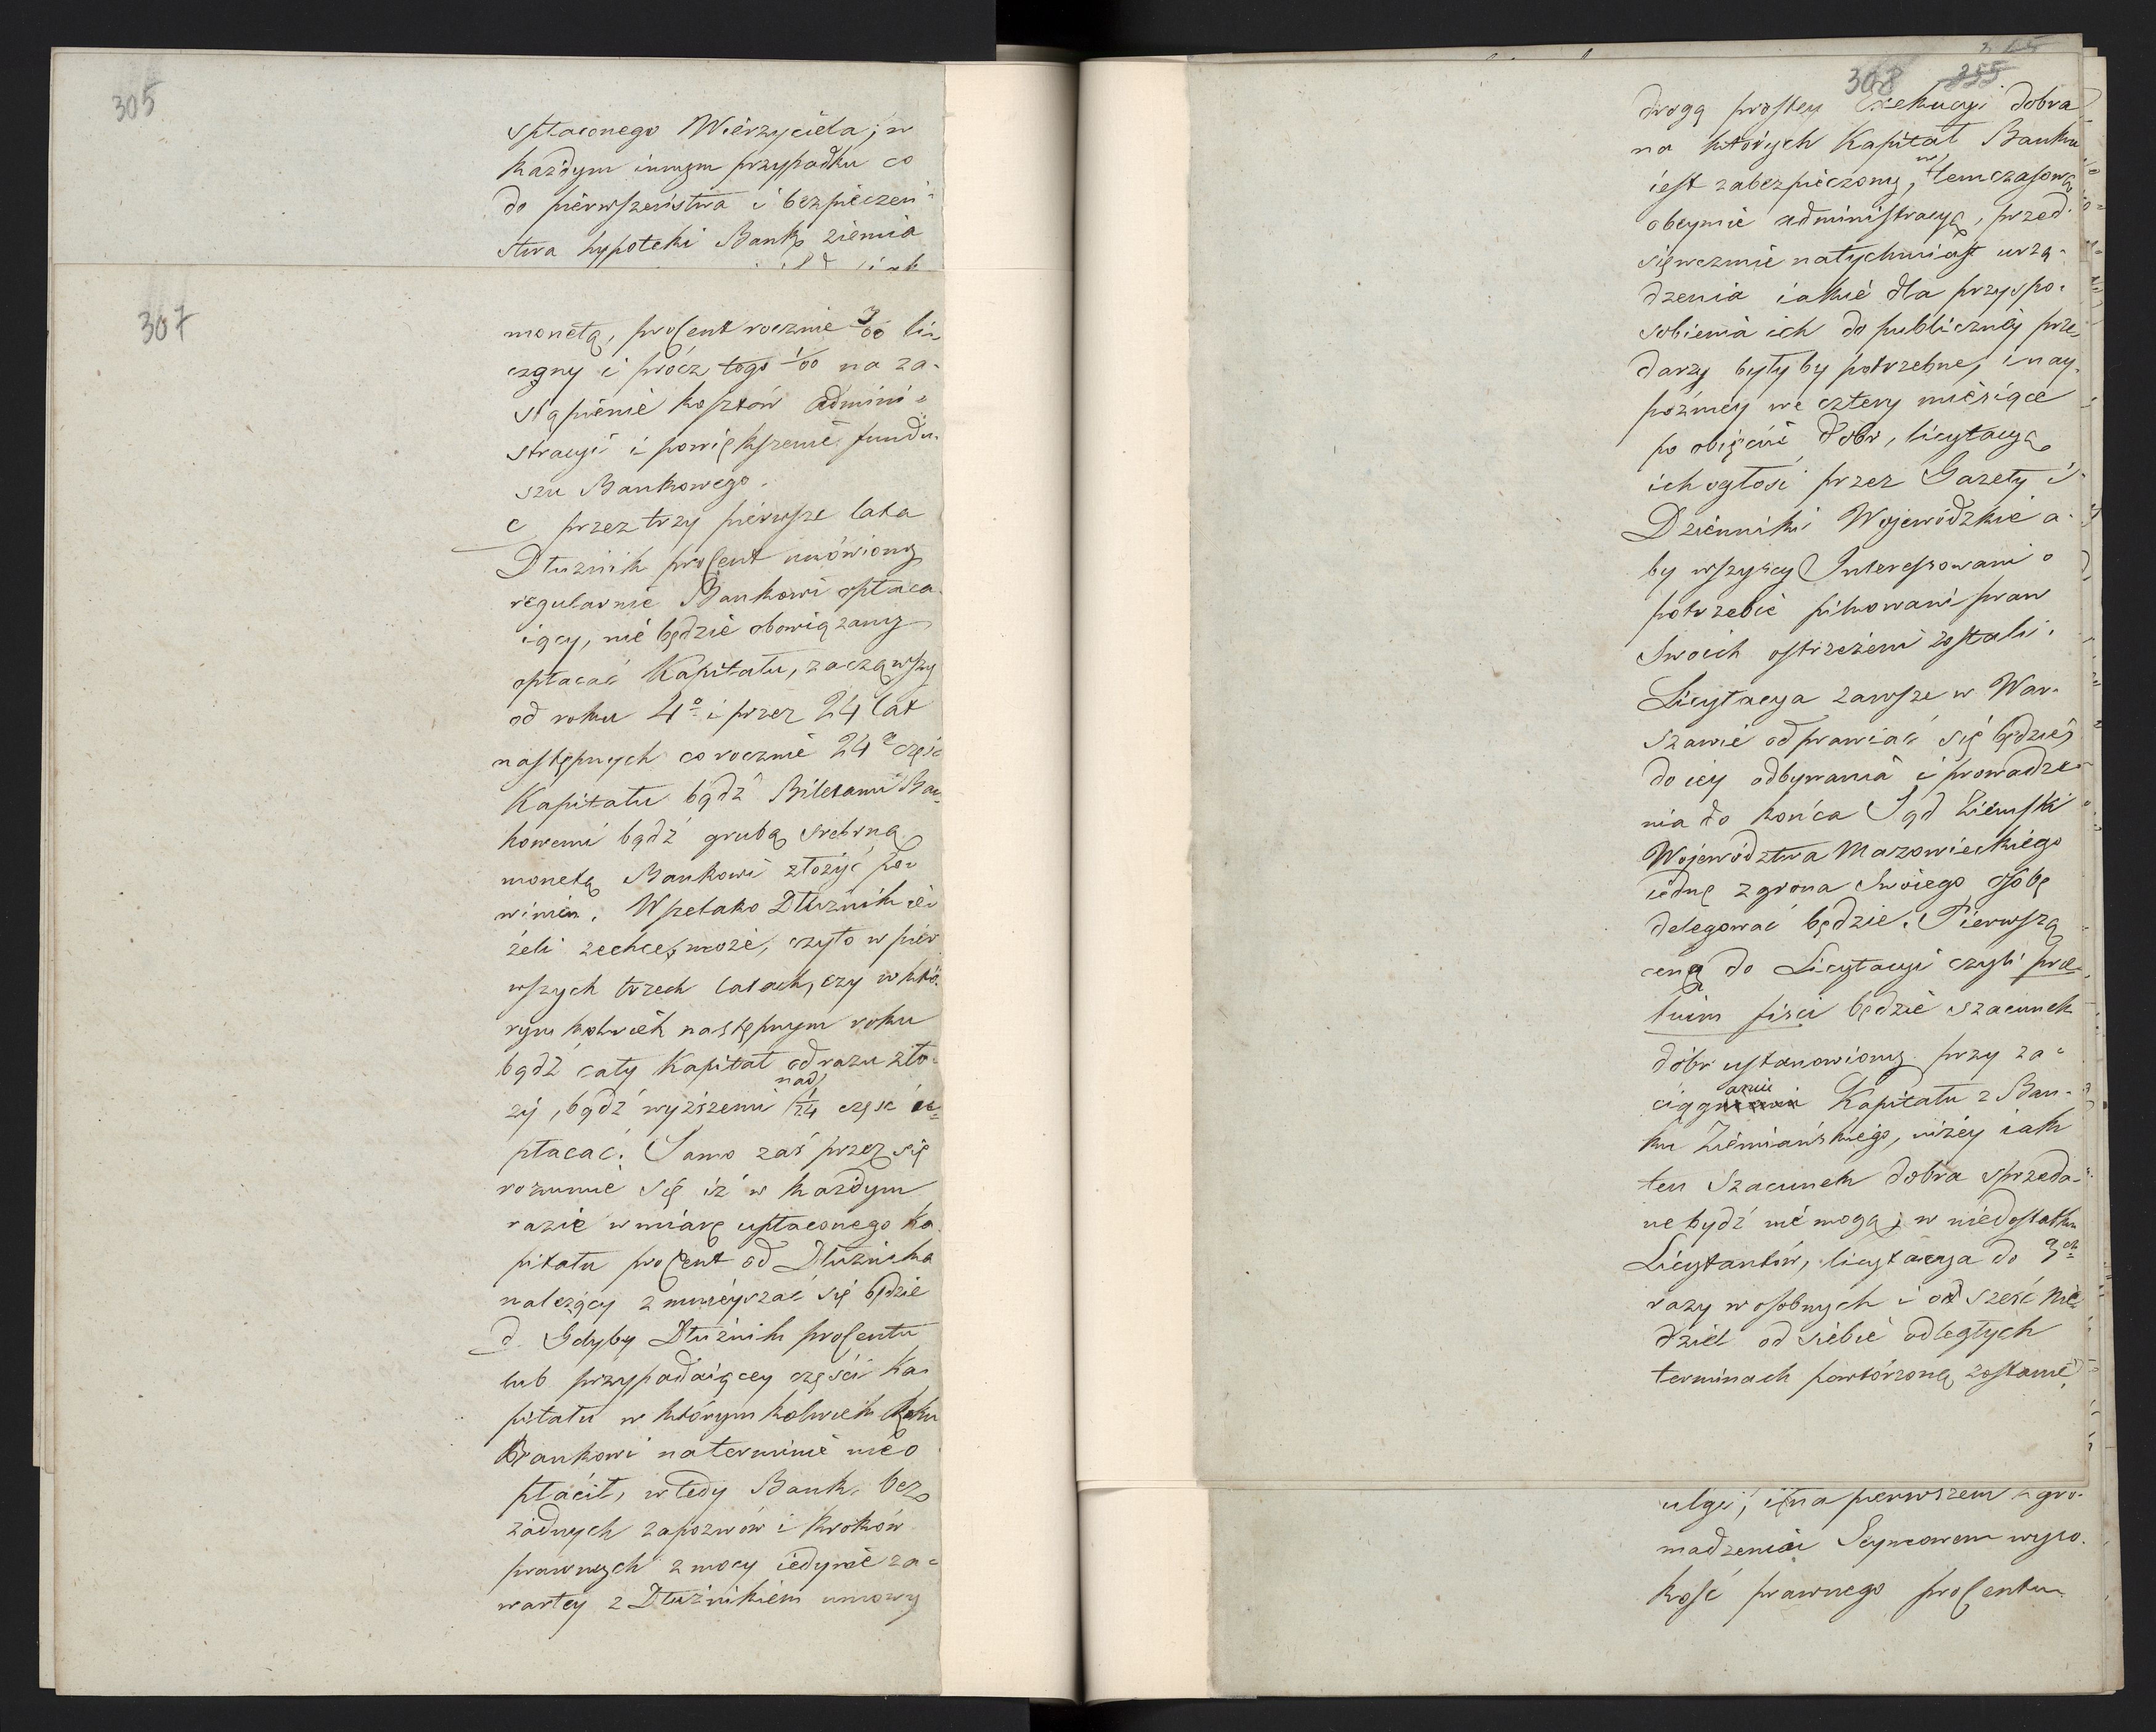 305
spłaconego Wierzyciela; w
każdym innym przypadku co
do pierwszeństwa i bezpieczeń-
stwa hypoteki Bank ziemia
307
monetą, procent rocznie 3/00 li-
czony i prócz tego 1/00 na za-
stąpienie kosztów admini-
stracyi i powiększenie fundu-
szu Bankowego.
c przez trzy pierwsze lata
Dłużnik procent umówiony
regularnie Bankowi opłaca-
iący, nie będzie obowiązany
opłacać Kapitału, zacząwszy
od roku 4o i przez 24 lat
następnych corocznie 24a część
Kapitału bądź Biletami Ban-
kowemi bądź grubą srebrną
monetą Bankowi złożyć po-
winien. Wszelako Dłużnik ie-
żeli zechce, może, czyto w pier-
wszych trzech latach, czy w któ-
rym kolwiek następnym roku
bądź cały Kapitał od razu zło-
nad
ży, bądź wyższemi 1/24 część
płacać. Samo zaś przez się
rozumie się iż w każdym
razie w miarę upłaconego Ka-
pitału procent od Dłużnika
należący zmnieyszać się będzie
d. Gdyby Dłużnik procentu
lub przypadaiącey części Ka-
pitału w którym kolwiek Roku
Bankowi naterminie nieo
płacił, wtedy Bank, bez
żadnych zapozwów i kroków
prawnych z mocy iedynie za-
wartey z Dłużnikiem umowy
308 255
drogą prostey Exekucyi dobra
na których Kapitał Banku
w
iest zabezpieczony, temczasową
obeymie administracyą, przed-
sięwezmie natychmiast urzą-
dzenia iakie dla przyspo-
sobienia ich do publiczney prze-
darzy byłyby potrzebne, i nay-
pózniey we cztery miesiące
po obięciu dóbr, licytacyą
ich ogłosi przez Gazety i
Dzienniki Wojewódzkie a-
by wszyscy Interessowani o
potrzebie pilnowani praw
Swoich ostrzeżeni zostali.
Licytacya zawsze w War-
szawie odprawiać się będzie,
do iey odbywania i prowadze-
nia do końca Sąd Ziemski
Województwa Mazowieckiego
iednę z grona Swoiego osobę
delegować będzie. Pierwszą
ceną do Licytacyi czyli pre-
tium fisci będzie szacunek
dóbr ustanowiony przy za-
aniu
ciągn Kapitału z Ban-
ku Ziemiańskiego, niżey iak
ten Szacunek dobra sprzeda-
ne bydź nie mogą; w niedostatku
Licytantów, licytacya do 3ch
razy w osobnych i od sześć nie-
dziel od siebie odległych
terminach powtórzoną zostanie,
ulgi, i na pierwszem zgro-
madzeniu Seymowem wyso-
kość prawnego procentu